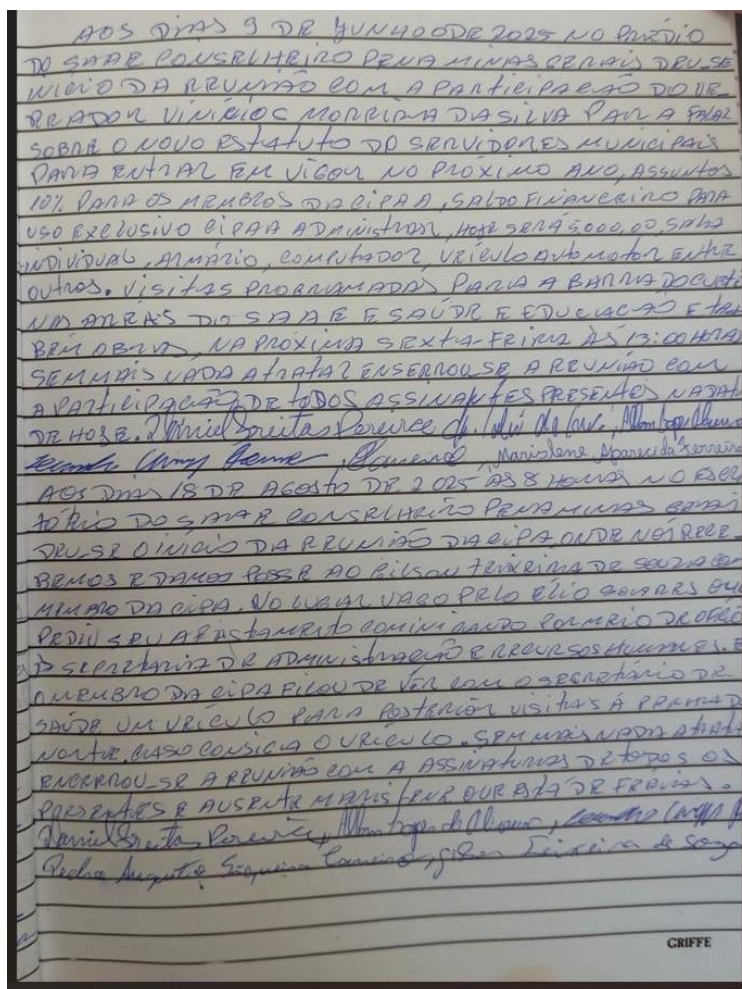 AOS DIAS 9 DE JUNHO DE 2025 NO PRÉDIO
DO SAAE CONSELHEIRO PENA MINAS GERAIS DEU-SE
INICIO DA REUNIÃO COM A PARTICIPAÇÃO DO VE
READOR VINICIOS MOREIRA DA SILVA PARA FALAR
SOBRE O NOVO ESTATUTO DO SERVIDORES MUNICIPAIS
PARA ENTRAR EM VIGOR NO PRÓXIMO ANO, ASSUNTOS
10% PARA OS MEMBROS DA CIPAA, SALDO FINANCEIRO PARA
USO EXCLUSIVO CIPAA ADMINISTRAR, HOJE SERÁ 5.000,00, SALA
INDIVIDUAL, ARMÁRIO, COMPUTADOR, VEÍCULO AUTOMOTOR ENTRE
OUTROS. VISITAS PROGRAMADAS PARA A BARRA DO CUIETÉ
NAS ÁREAS DO SAAE E SAÚDE E EDUCAÇÃO E TAM
BEM OBRAS, NA PRÓXIMA SEXTA-FEIRA ÀS 13:00 HORAS
SEM MAIS NADA A TRATAR ENSERROU-SE A REUNIÃO COM
A PARTICIPAÇÃO DE TODOS ASSINANTES PRESENTES NA DATA
DE HOJE. Daniel Freitas Pereira
Carneiro, Marislene Aparecida Ferreira
AOS DIAS 18 DE AGOSTO DE 2025 ÀS 8 HORAS NO ESCRI
TÓRIO DO SAAE CONSELHEIRO PENA MINAS GERAIS
DEU-SE O INICIO DA REUNIÃO DA CIPA, ONDE NÓS RECE-
BEMOS E DAMOS POSSE AO GILSON TEIXEIRA DE SOUZA COMO
MEMBRO DA CIPA. NO LUGAR VAGO PELO ÉLIO SOARES QUE
PEDIU SEU AFASTAMENTO POR MEIO DE OFÍCIO
SECRETARIA DE ADMINISTRAÇÃO E RECURSOS HUMANOS. E
O MEMBRO DA CIPA FICOU DE VER COM O SECRETÁRIO DE
SAÚDE UM VEÍCULO PARA POSTERIOR VISITAS Á PENHA DO
NORTE. CASO CONSIGA O VEÍCULO. SEM MAIS NADA A TRATAR
ENCERROU-SE A REUNIÃO COM A ASSINATURAS DE TODOS OS
PRESENTES E AUSENTE MARISLENE QUE ESTÁ DE FÉRIAS.
Daniel Freitas Pereira,
Pedro Augusto Siqueira Carneiro, Gilson Teixeira de Souza
GRIFFE